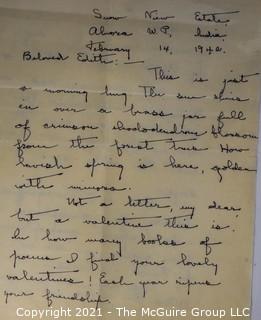 Snow View Estate,
Almora U.P., India
February 14, 1940.
Beloved Edith: —
This is just
a morning hug. The sun shines
in over a brass jar full
of crimson rhododendron blossoms
from the forest trees. How
lavish spring is here, golden
with mimosa.
Not a letter, my dear,
but a valentine this is.
In how many books of
poems I find your lovely
valentines! Each year ripens
your friendship
Copyright 2021 - The McGuire Group LLC